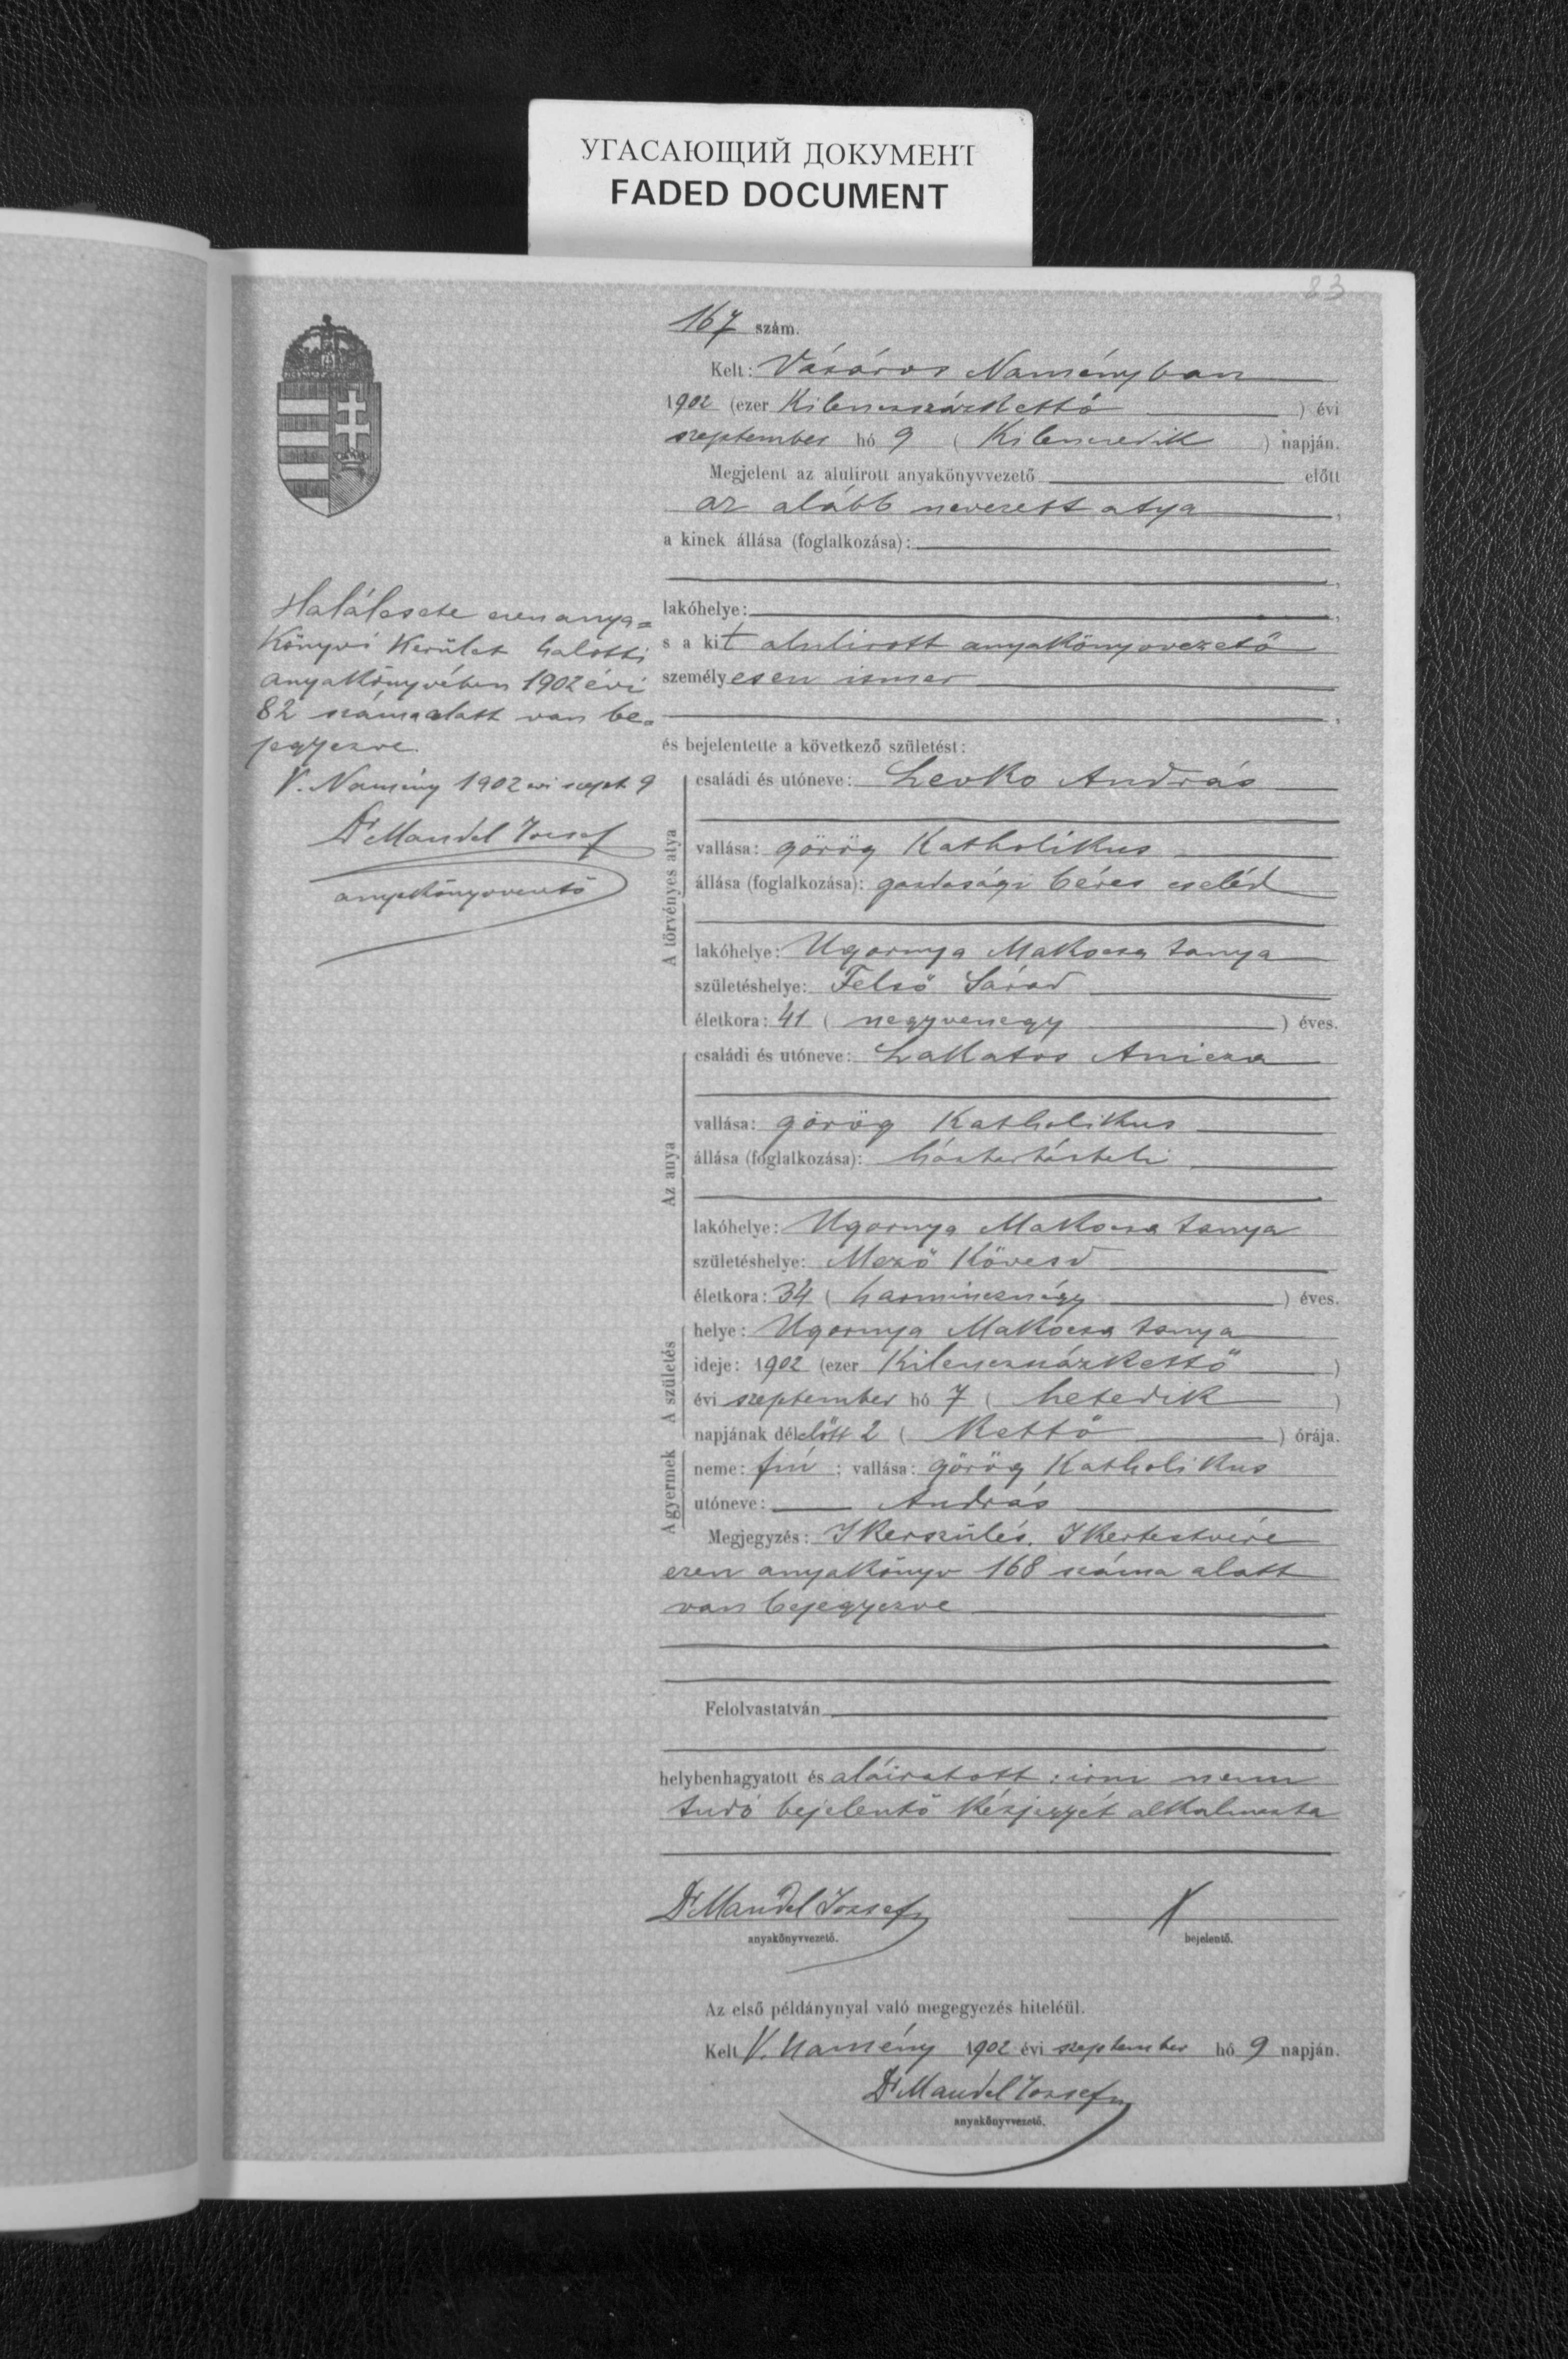 УГАСАЮЩИЙ ДОКУМЕНТ
FADED DOCUMENT
83
167 szám.
Kelt: Vásáros Naményban
1902 (ezer Kilenczszázkettő) évi
szeptember hó 9 (Kilenczedik) napján.
Megjelent az alulirott anyakönyvvezető előtt
az alább nevezett atya,
a kinek állása (foglalkozása):
lakóhelye:
s a kit alulirott anyakönyvvezető
személyesen ismer
és bejelentette a következő születést:
A törvényes atya
családi és utóneve: Levko András
vallása: görög Katholikus
állása (foglalkozása): gazdasági béres cseléd
lakóhelye: Ugornya Makocsa tanya
születéshelye: Felső Sárad
életkora: 41 (negyvenegy) éves.
Az anya
családi és utóneve: Lakatos Anicza
vallása: görög Katholikus
állása (foglalkozása): háztartásbeli
lakóhelye: Ugornya Makocsa tanya
születéshelye: Mező Kövesd
életkora: 34 (harmincznégy) éves.
A születés
helye: Ugornya Makocsa tanya
ideje: 1902 (ezer Kilenczszázkettő)
évi szeptember hó 7 (hetedik)
napjának délelőtt 2 (Kettő) órája.
A gyermek
neme: fiú; vallása: görög Katholikus
utóneve: András
Megjegyzés: Ikerszülés. Ikertestvére
ezen anyakönyv 168 száma alatt
van bejegyezve
Felolvastatván
helybenhagyatott és aláiratott; irni nem
tudó bejelentő kézjegyét alkalmazta
Dr Mandel József
anyakönyvvezető.
X
bejelentő.
Az első példánynyal való megegyezés hiteléül.
Kelt V. Namény 1902 évi szeptember hó 9 napján.
Dr Mandel József
anyakönyvvezető.
Halálesete ezen anya=
Könyvi Kerület halotti
anyakönyvében 1902 évi
82 száma alatt van be=
jegyezve.
V. Namény 1902 évi szept 9
Dr Mandel József
anyakönyvvezető